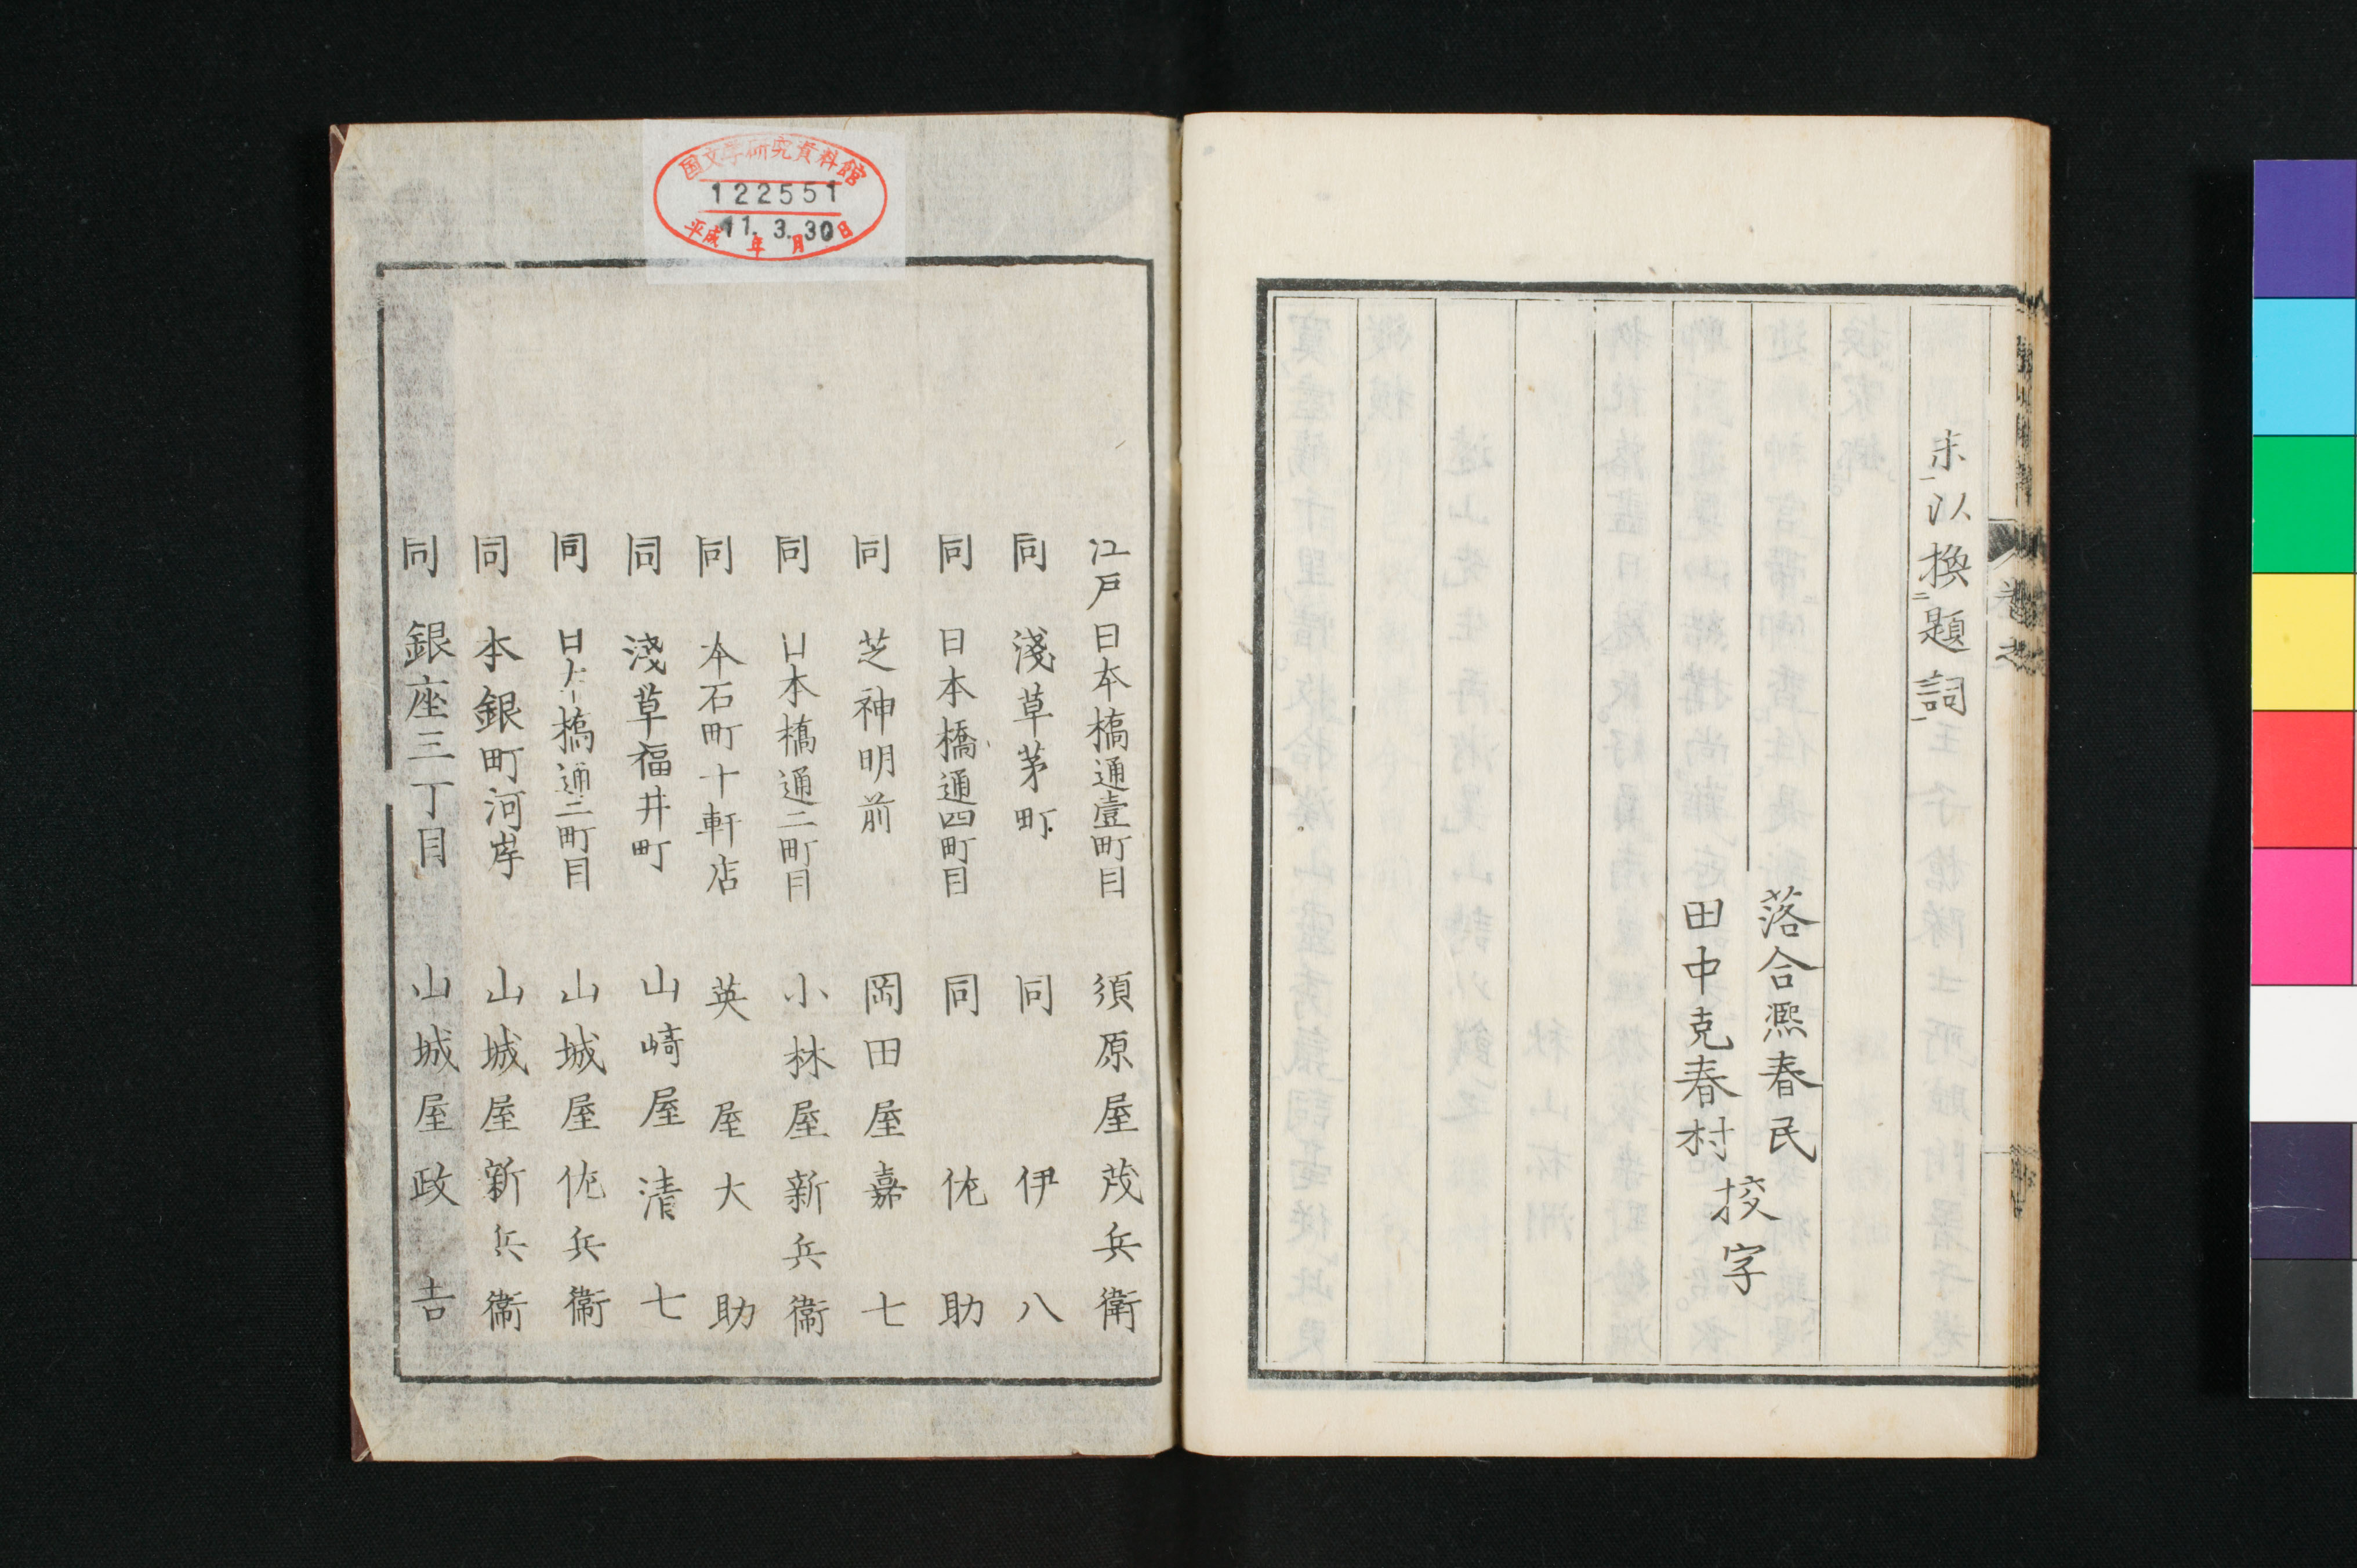 末以換題詞
落合濕春民
田中克春村
挍字
国文学研究資料館
122551
平成11年3月30日
江戸日本橋通壹町目 須原屋茂兵衛
同 淺草茅町 同 伊八
同 日本橋通四町目 同 佐助
同 芝神明前 岡田屋嘉七
同 日本橋通二町目 小林屋新兵衞
同 本石町十軒店 英屋大助
同 淺草福井町 山崎屋清七
同 日本橋通二町目 山城屋佐兵衞
同 本銀町河岸 山城屋新兵衞
同 銀座三丁目 山城屋政吉